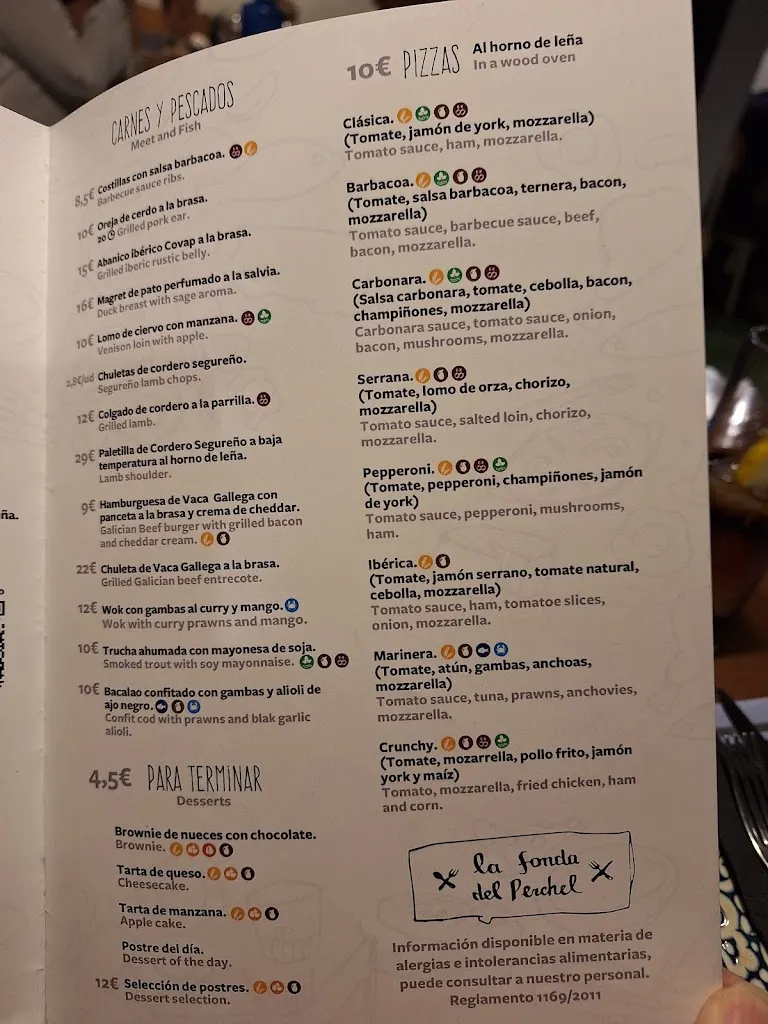 ña.
CARNES Y PESCADOS
Meet and Fish
8,5€ Costillas con salsa barbacoa.
Barbecue sauce ribs.
10€ Oreja de cerdo a la brasa.
20 Grilled pork ear.
15€ Abanico ibérico Covap a la brasa.
Grilled iberic rustic belly.
16€ Magret de pato perfumado a la salvia.
Duck breast with sage aroma.
10€ Lomo de ciervo con manzana.
Venison loin with apple.
2,8€/ud Chuletas de cordero segureño.
Segureño lamb chops.
12€ Colgado de cordero a la parrilla.
Grilled lamb.
29€ Paletilla de Cordero Segureño a baja
temperatura al horno de leña.
Lamb shoulder.
9€ Hamburguesa de Vaca Gallega con
panceta a la brasa y crema de cheddar.
Galician Beef burger with grilled bacon
and cheddar cream.
22€ Chuleta de Vaca Gallega a la brasa.
Grilled Galician beef entrecote.
12€ Wok con gambas al curry y mango.
Wok with curry prawns and mango.
10€ Trucha ahumada con mayonesa de soja.
Smoked trout with soy mayonnaise.
10€ Bacalao confitado con gambas y alioli de
ajo negro.
Confit cod with prawns and blak garlic
alioli.
4,5€ PARA TERMINAR
Desserts
Brownie de nueces con chocolate.
Brownie.
Tarta de queso.
Cheesecake.
Tarta de manzana.
Apple cake.
Postre del día.
Dessert of the day.
12€ Selección de postres.
Dessert selection.
10€ PIZZAS Al horno de leña
In a wood oven
Clásica.
(Tomate, jamón de york, mozzarella)
Tomato sauce, ham, mozzarella.
Barbacoa.
(Tomate, salsa barbacoa, ternera, bacon,
mozzarella)
Tomato sauce, barbecue sauce, beef,
bacon, mozzarella.
Carbonara.
(Salsa carbonara, tomate, cebolla, bacon,
champiñones, mozzarella)
Carbonara sauce, tomato sauce, onion,
bacon, mushrooms, mozzarella.
Serrana.
(Tomate, lomo de orza, chorizo,
mozzarella)
Tomato sauce, salted loin, chorizo,
mozzarella.
Pepperoni.
(Tomate, pepperoni, champiñones, jamón
de york)
Tomato sauce, pepperoni, mushrooms,
ham.
Ibérica.
(Tomate, jamón serrano, tomate natural,
cebolla, mozzarella)
Tomato sauce, ham, tomatoe slices,
onion, mozzarella.
Marinera.
(Tomate, atún, gambas, anchoas,
mozzarella)
Tomato sauce, tuna, prawns, anchovies,
mozzarella.
Crunchy.
(Tomate, mozarrella, pollo frito, jamón
york y maíz)
Tomato, mozzarella, fried chicken, ham
and corn.
la fonda
del Perchel
Información disponible en materia de
alergias e intolerancias alimentarias,
puede consultar a nuestro personal.
Reglamento 1169/2011